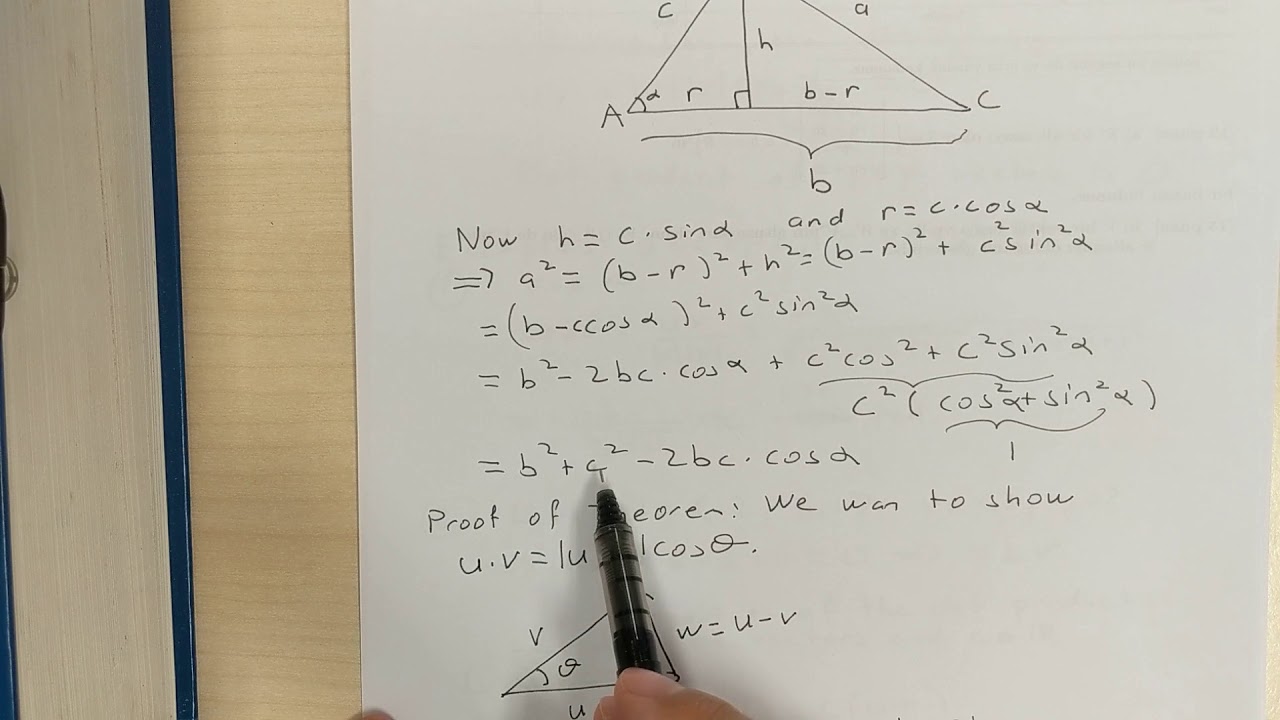 c a
h
A α r b-r C
b
Now h = c · sinα and r = c·cosα
=> a² = (b-r)² + h² = (b-r)² + c²sin²α
= (b-ccosα)² + c²sin²α
= b² - 2bc·cosα + c²cos² + c²sin²α
c²(cos²α+sin²α)
1
= b² + c² - 2bc·cosα
Proof of heorem: We wan to show
u·v = |u |cosθ.
v w = u-v
θ
u